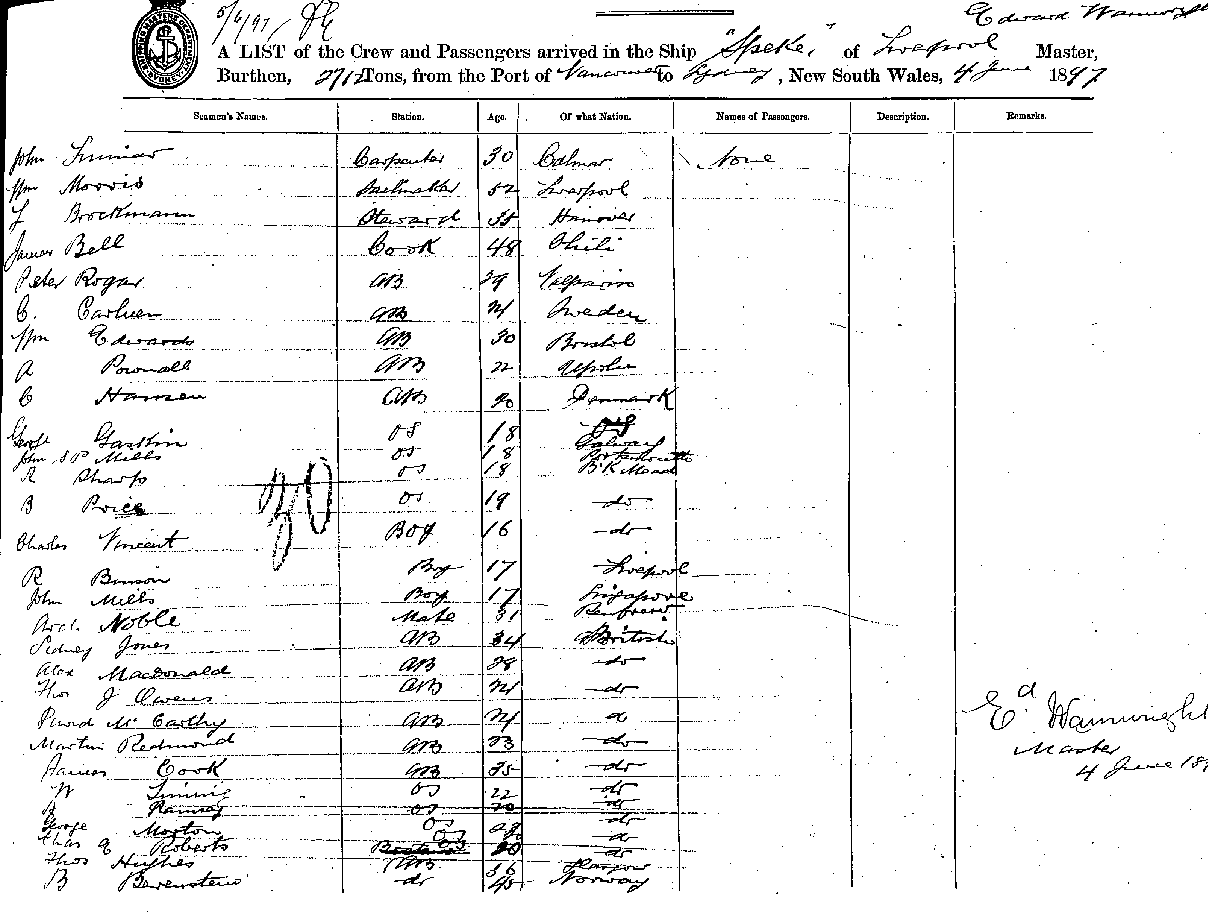 5/6/97
Edward Wannwright
A LIST of the Crew and Passengers arrived in the Ship "Speke," of Liverpool Master,
Burthen, 2712 Tons, from the Port of Vancouver to Sydney, New South Wales, 4 June 1897
Seamen's Names. Station. Age. Of what Nation. Names of Passengers. Description. Remarks.
John Carpenter 30 None
Wm Morris Sailmaker 52 Liverpool
Brockmann Steward 35 Hanover
James Bell Cook 48 Chili
Peter Rogar AB 29 Valparaiso
C. AB Sweden
Wm Edwards AB 30 Bristol
A Pownall AB 22
C Hansen AB 20 Denmark
George Gaskin OS 18 Galway
John S P Mills OS 18 Portsmouth
R Sharp OS 18 B'K Mead
B Price OS 19 do
Charles Vincent Boy 16 do
R Boy 17 Liverpool
John Mills Boy 17 Singapore
Arch. Noble Mate 31 Renfrew
Sidney Jones AB 34 British
Alex MacDonald AB 28 do
Thos J Owens AB do
McCarthy AB d
Martin Redmond AB 33 do
James Cook AB 35 do
W OS 22 do
Ramsey OS 20 do
George Morton OS do
Chas E Roberts OS do
Thos Hughes AB 36 Glasgow
B do Norway
30
Ed Wannwright
Master
4 June 189